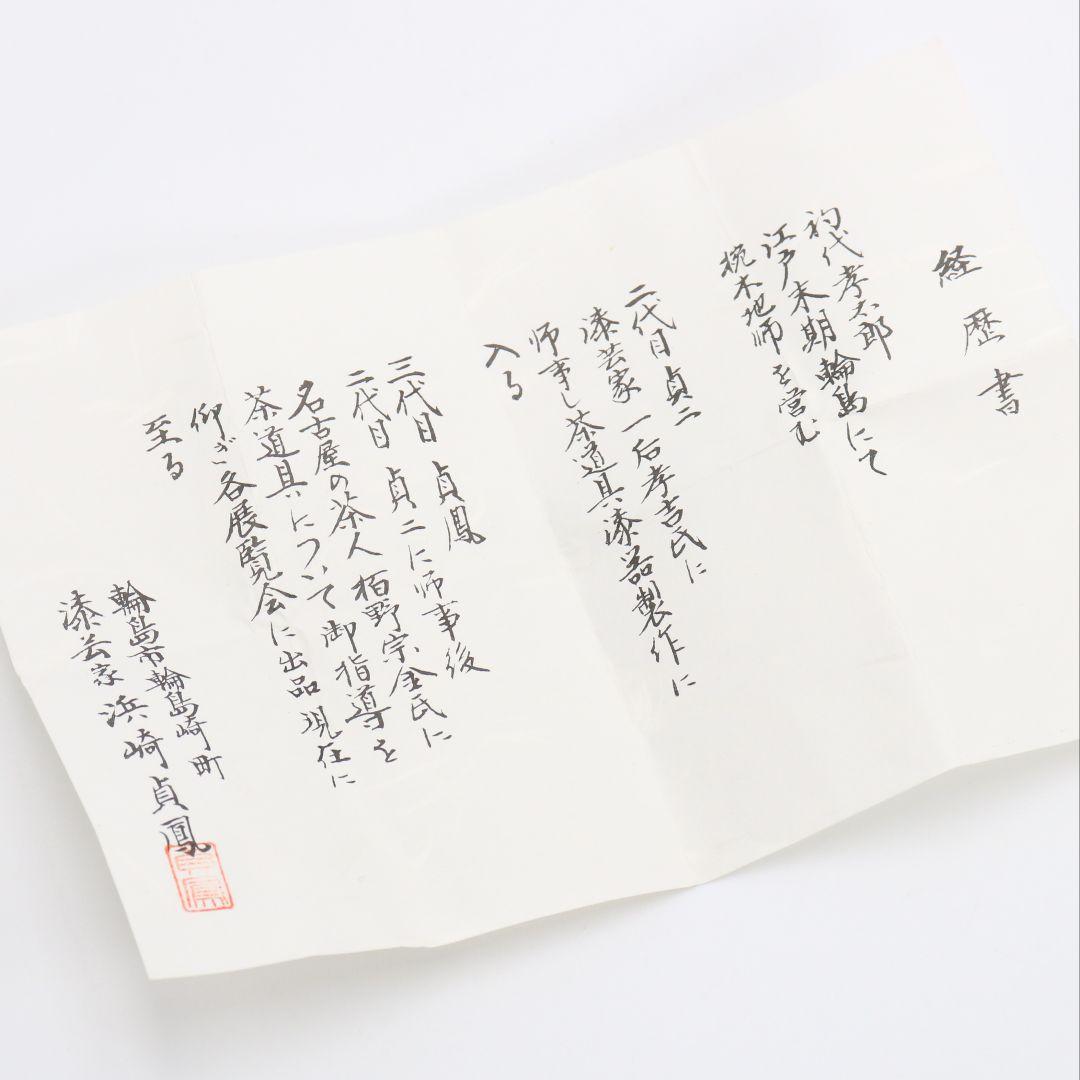 経歴書
初代 孝太郎
江戸末期輪島にて
椀木地師を営む
二代目 貞二
漆芸家 一后孝吉氏に
師事し茶道具漆器製作に
入る
三代目 貞鳳
二代目 貞二に師事後
名古屋の茶人 栢野宗金氏に
茶道具について御指導を
仰ぎ各展覧会に出品 現在に
至る
輪島市輪島崎町
漆芸家 浜崎貞鳳